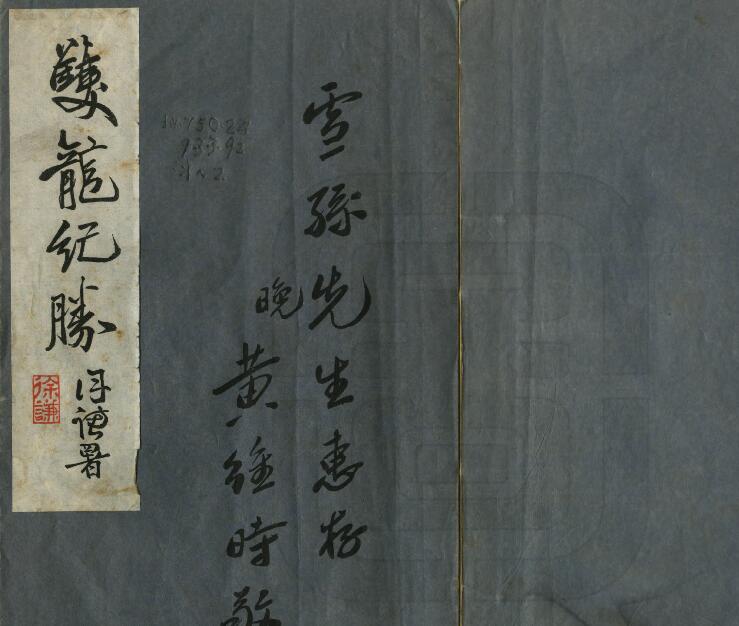 雙龍紀勝
徐謙署
徐謙
雪孫先生惠存
晚
黃維時敬